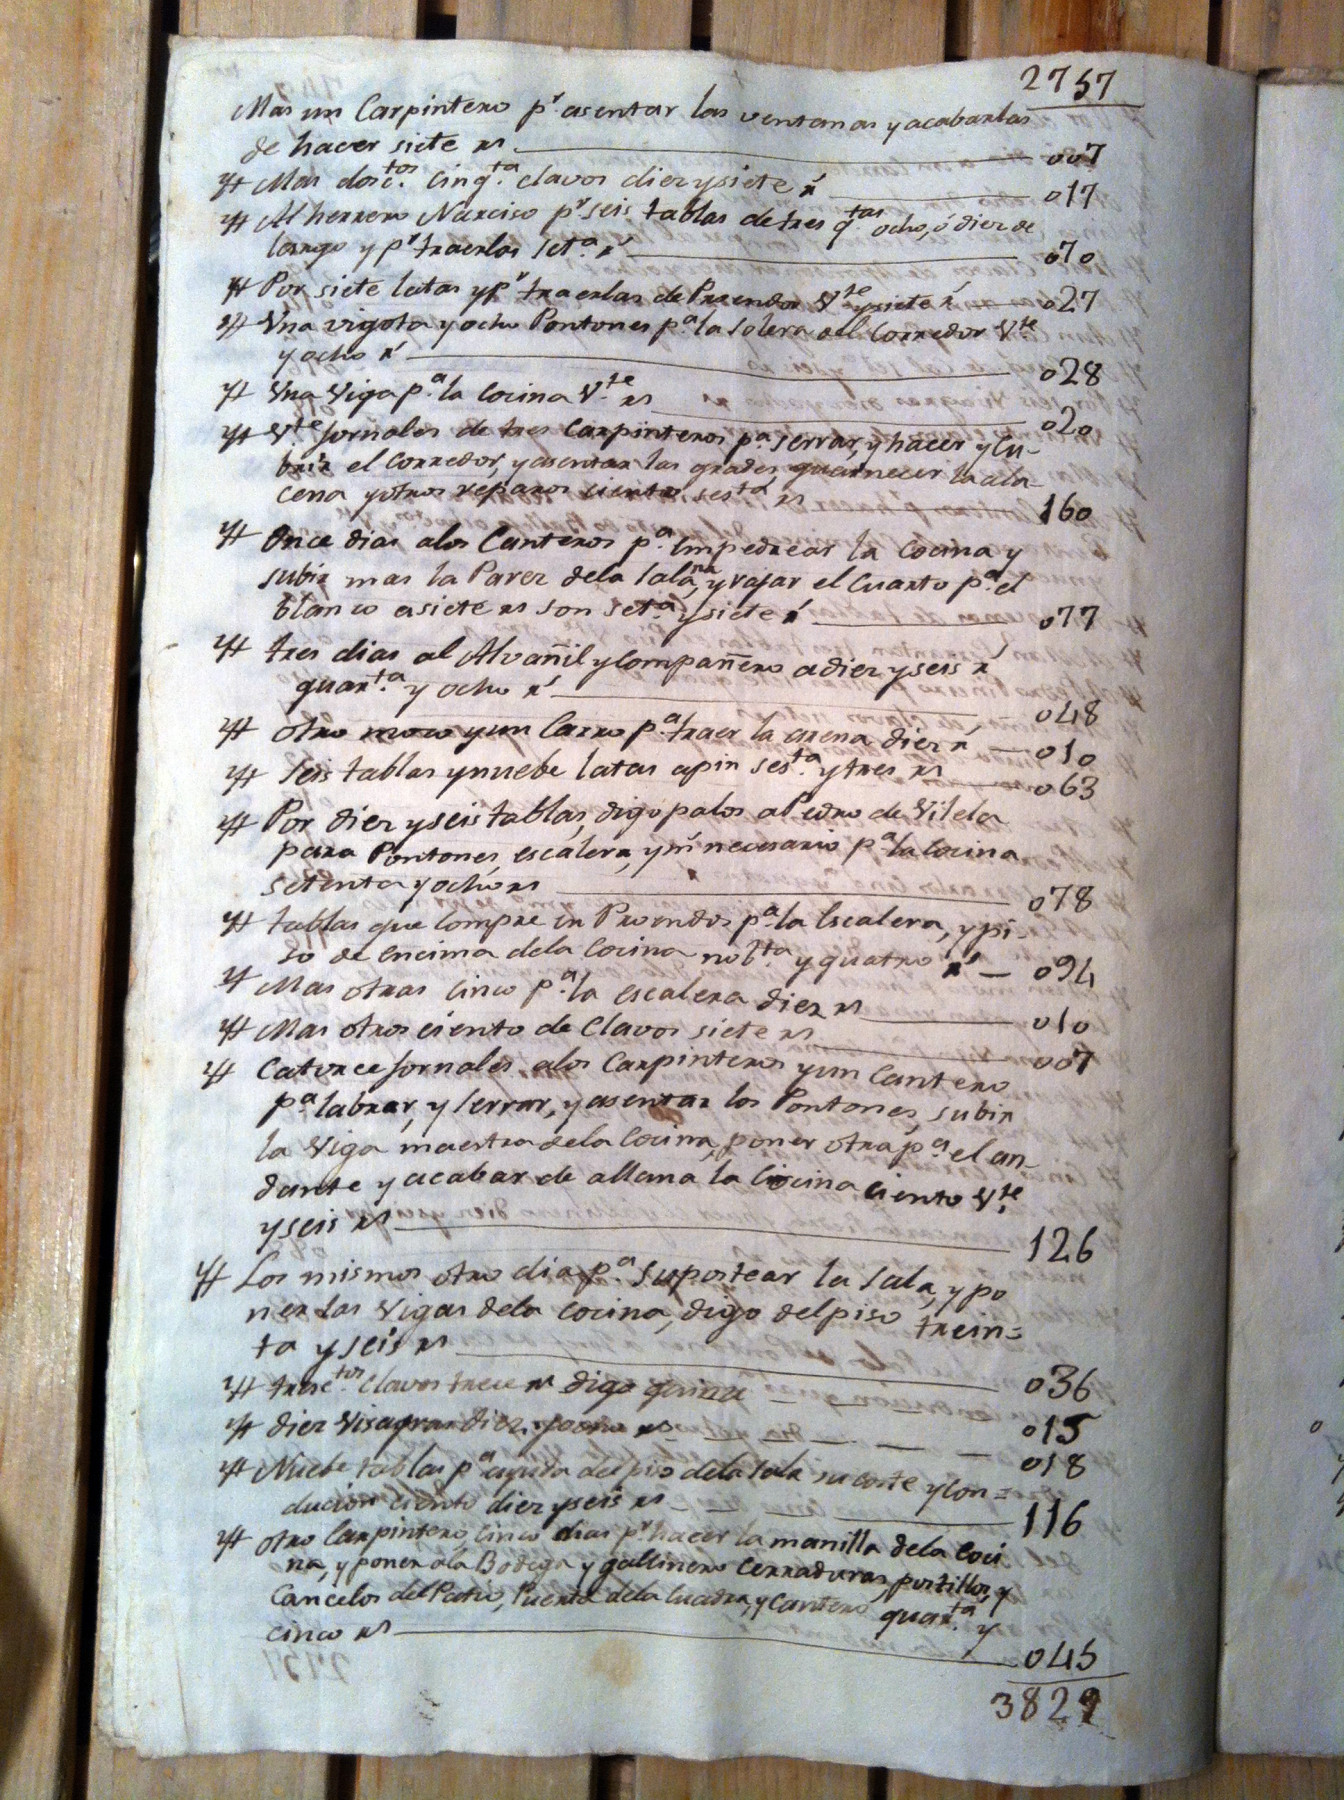 2757
Mas un Carpintero pr. asentar las ventanas y acabarlas
de hacer siete rs. 007
Mas dosc.tos cinq.ta clavos diez y siete r.s 017
Al herrero Narciso pr. seis tablas de tres q.tas ocho, ó diez de
largo y pr. traerlas set.a r.s 070
Por siete latas y pr. traerlas de Prrendos V.te y siete r.s 027
Vna vigota y ocho Pontones p.a la solera del Corredor V.te
y ocho r.s 028
Vna Viga p.a la Cocina V.te rs 020
V.te Jornales de tres Carpinteros p.a serrar, y hacer y cu-
brir el Corredor, y asentar las grades, guarnecer la ala-
cena y otros reparos ciento ses.ta rs 160
Once dias a los Canteros p.a Empedrear la Cocina y
subir mas la Parez dela sala.na, y rajar el Cuarto p.a el
blanco a siete rs son set.a y siete r.s 077
tres dias al Alvañil y Compañero a diez y seis r.s
quar.ta y ocho r.s 048
otro moco y un Carro p.a traer la arena diez r.s 010
Seis tablas y nuebe latas a pin ses.ta y tres rs 063
Por diez y seis tablas, digo palos a Pedro de Vilela
para Pontones, escalera, y m.s necesario p.a la Cocina
setenta y ocho rs 078
tablas que Compre en Proendos p.a la Escalera, y pi-
so de encima dela Cocina nob.ta y quatro r.s 094
Mas otras cinco p.a la escalera diez rs 010
Mas otros ciento de Clavos siete rs 007
Catorce Jornales a los Carpinteros y un Cantero
p.a labrar, y serrar, y asentar los Pontones, subir
la Viga maestra dela Cocina, poner otra p.a el an-
dante y acabar de allana la Cocina ciento V.te
y seis rs 126
Los mismos otro dia p.a supostear la sala, y po
ner las Vigas dela Cocina, digo del piso trein=
ta y seis rs 036
tresc.tos Clavos trece rs digo quince 015
diez Visagras diez y ocho rs 018
Nuebe tablas p.a ayuda del piso dela sala su coste y con=
ducion ciento diez y seis rs 116
otro Carpintero, cinco dias pr. hacer la manilla dela Coci
na, y poner a la Bodega y gallinero Cerraduras, portillos, y
Cancelos del Patio, Puerta dela Cuadra, y Cantero quar.ta y
cinco rs 045
3829